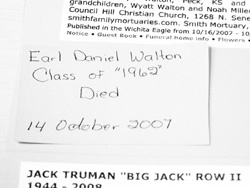 grandchildren, Wyatt Walton and Noah Miller
Council Hill Christian Church, 1268 N. Sene
smithfamilymortuaries.com. Smith Mortuary,
Published in the Wichita Eagle from 10/16/2007 - 10
Notice • Guest Book • Funeral home info • Flowers •
Earl Daniel Walton
Class of "1962"
Died
14 October 2007
JACK TRUMAN "BIG JACK" ROW II
1944 - 2008